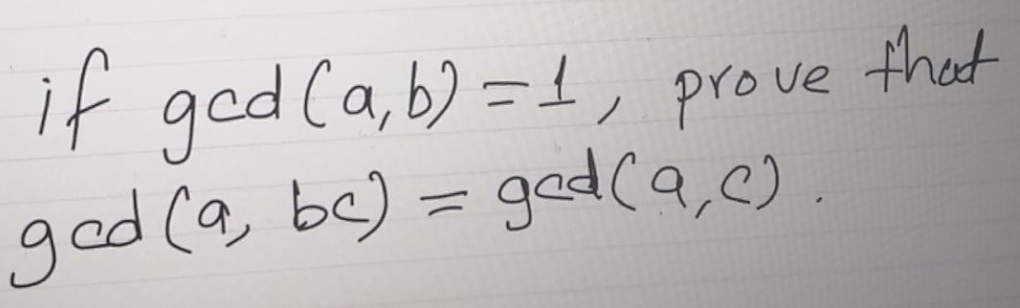 if gcd(a,b)=1, prove that
gcd(a, bc) = gcd(a,c).